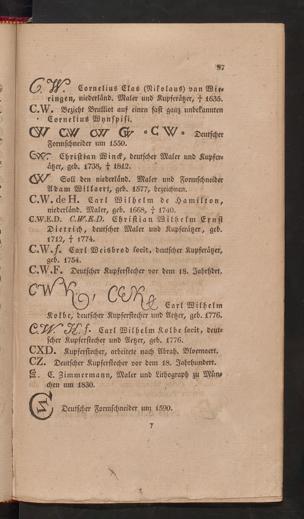 97
C. W. Cornelius Clas (Nikolaus) van Wie-
ringen, niederländ. Maler und Kupferätzer, † 1635.
C.W. Bezieht Brulliot auf einen fast ganz unbekannten
Cornelius Wynspisi.
CW CW CW CW • C W • Deutscher
Formschneider um 1550.
CW. Christian Winck, deutscher Maler und Kupfer-
ätzer, geb. 1738, † 1812.
CW Soll den niederländ. Maler und Formschneider
Adam Willaert, geb. 1577, bezeichnen.
C.W. de H. Carl Wilhelm de Hamilton,
niederländ. Maler, geb. 1668, † 1740.
C.W.E.D. C.W.E.D. Christian Wilhelm Ernst
Dietrich, deutscher Maler und Kupferätzer, geb.
1712, † 1774.
C.W.f. Carl Weisbrod fecit, deutscher Kupferätzer,
geb. 1754.
C.W.F. Deutscher Kupferstecher vor dem 18. Jahrhdrt.
CWK, CWK Carl Wilhelm
Kolbe, deutscher Kupferstecher und Aetzer, geb. 1776.
C. W. K. f. Carl Wilhelm Kolbe fecit, deut-
scher Kupferstecher und Aetzer, geb. 1776.
CXD. Kupferstecher, arbeitete nach Abrah. Bloemaert.
CZ. Deutscher Kupferstecher vor dem 18. Jahrhundert.
E. Zimmermann, Maler und Lithograph zu Mün-
chen um 1830.
Deutscher Formschneider um 1590.
7